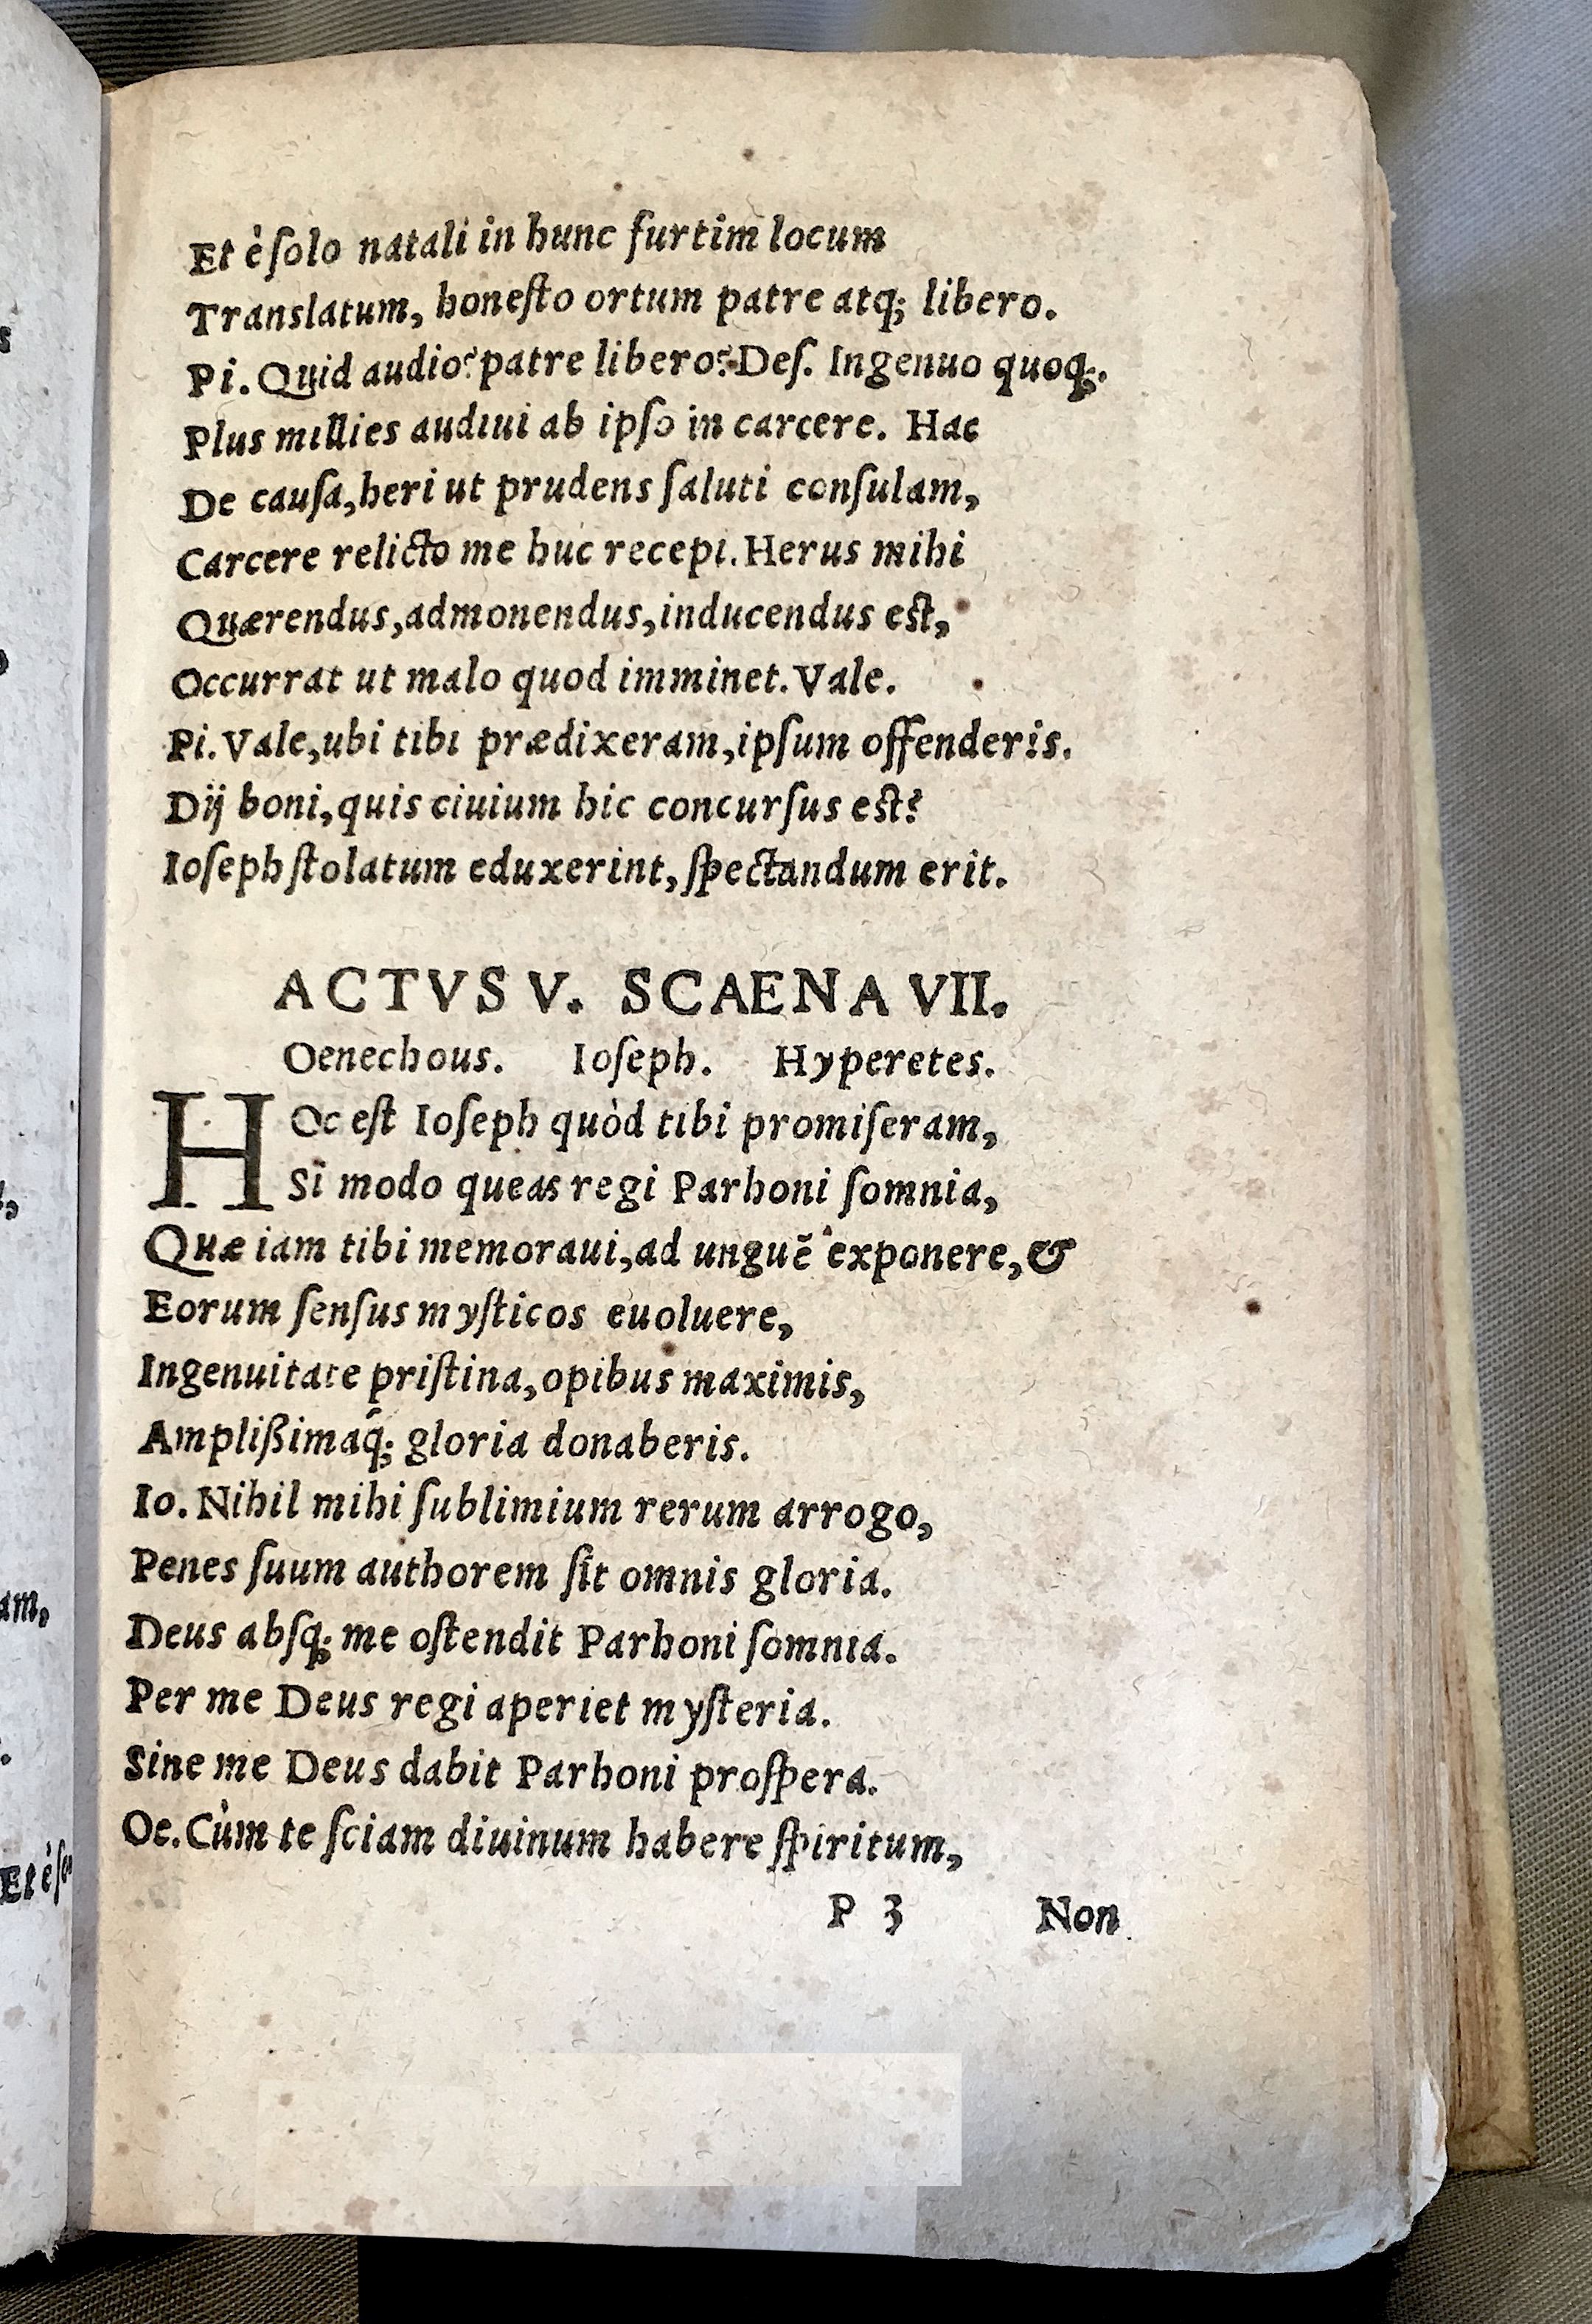 Et è ſolo natali in hunc furtim locum
Translatum, honeſto ortum patre atq; libero.
Pi. Quid audio? patre libero? Deſ. Ingenuo quoq;.
Plus millies audiui ab ipſo in carcere. Hac
De cauſa, heri ut prudens ſaluti conſulam,
Carcere relicto me huc recepi. Herus mihi
Quærendus, admonendus, inducendus eſt,
Occurrat ut malo quod imminet. Vale.
Pi. Vale, ubi tibi prædixeram, ipſum offenderis.
Dij boni, quis ciuium hic concurſus eſt?
Ioſeph ſtolatum eduxerint, ſpectandum erit.
ACTVS V. SCAENA VII.
Oenechous. Ioſeph. Hyperetes.
HOc eſt Ioſeph quòd tibi promiſeram,
Si modo queas regi Parhoni ſomnia,
Quæ iam tibi memoraui, ad unguē exponere, &
Eorum ſenſus myſticos euoluere,
Ingenuitate priſtina, opibus maximis,
Ampliſsimaq́; gloria donaberis.
Io. Nihil mihi ſublimium rerum arrogo,
Penes ſuum authorem ſit omnis gloria.
Deus abſq; me oſtendit Parhoni ſomnia.
Per me Deus regi aperiet myſteria.
Sine me Deus dabit Parhoni proſpera.
Oe. Cùm te ſciam diuinum habere ſpiritum,
P 3 Non